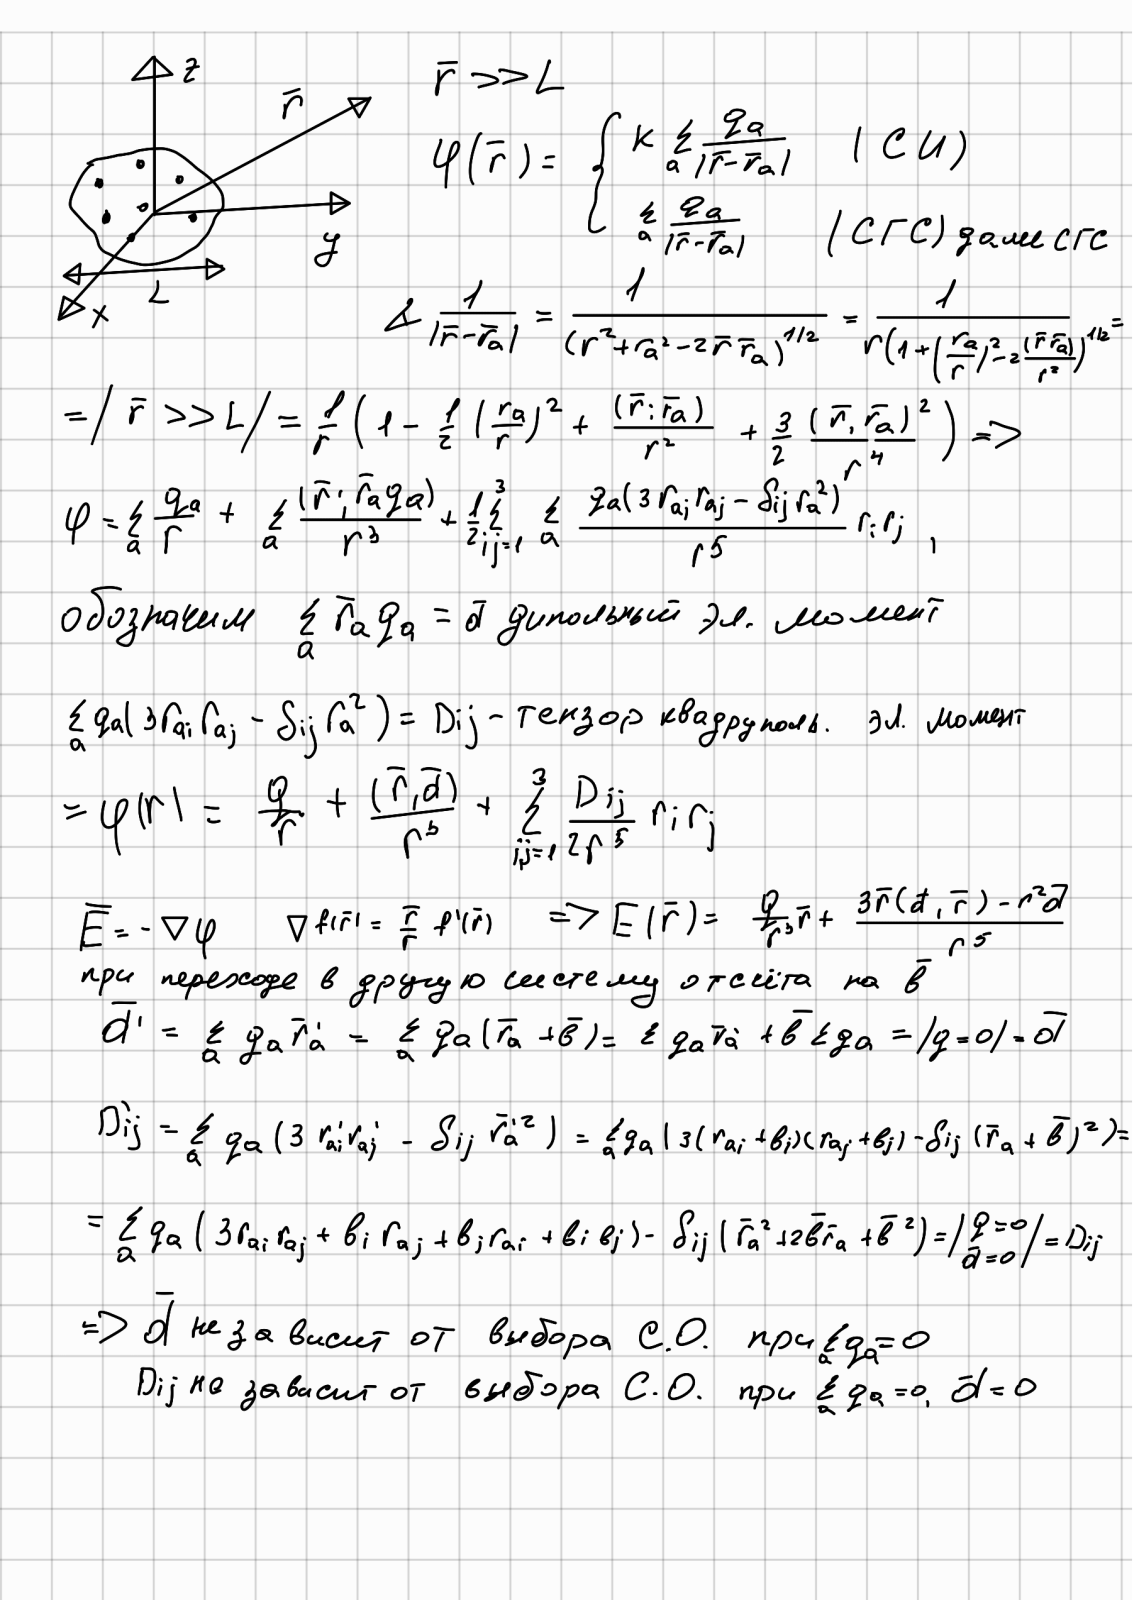 z
r̄
y
L
x
r̄ >> L
φ(r̄) = { K Σ_a q_a / |r̄ - r̄_a| (СИ)
Σ_a q_a / |r̄ - r̄_a| (СГС) далее СГС
∡ 1/|r̄ - r̄_a| = 1/(r² + r_a² - 2 r̄ r̄_a)^{1/2} = 1/(r(1 + (r_a/r)² - 2 (r̄ r̄_a)/r²)^{1/2}) =
= / r̄ >> L / = 1/r (1 - 1/2 (r_a/r)² + (r̄; r̄_a)/r² + 3/2 (r̄, r̄_a)²/r⁴) =>
φ = Σ_a q_a/r + Σ_a (r̄; r̄_a q_a)/r³ + 1/2 Σ_{ij=1}^{3} Σ_a q_a(3 r_aj r_aj - δ_ij r_a²)/r⁵ r_i r_j ,
обозначим Σ_a r̄_a q_a = d̄ дипольный эл. момент
Σ_a q_a(3 r_ai r_aj - δ_ij r_a²) = D_ij - тензор квадруполь. эл. момент
= φ(r) = q/r + (r̄, d̄)/r³ + Σ_{i,j=1}^{3} D_ij/2r⁵ r_i r_j
Ē = -∇φ ∇f(r̄) = r̄/r f'(r̄) => E(r̄) = q/r³ r̄ + (3r̄(d, r̄) - r²d̄)/r⁵
при переходе в другую систему отсчёта на b̄
d̄' = Σ_a q_a r̄_a' = Σ_a q_a(r̄_a + b̄) = Σ q_a r̄_a + b̄ Σ q_a = /q=0/ = d̄
D'_ij = Σ_a q_a(3 r'_ai r'_aj - δ_ij r̄'_a²) = Σ_a q_a(3(r_ai + b_i)(r_aj + b_j) - δ_ij(r̄_a + b̄)²) =
= Σ_a q_a(3 r_ai r_aj + b_i r_aj + b_j r_ai + b_i b_j) - δ_ij(r̄_a² + 2b̄r̄_a + b̄²) = /q=0 d̄=0/ = D_ij
=> d̄ не зависит от выбора С.О. при Σ_a q_a = 0
D_ij не зависит от выбора С.О. при Σ_a q_a = 0, d̄ = 0